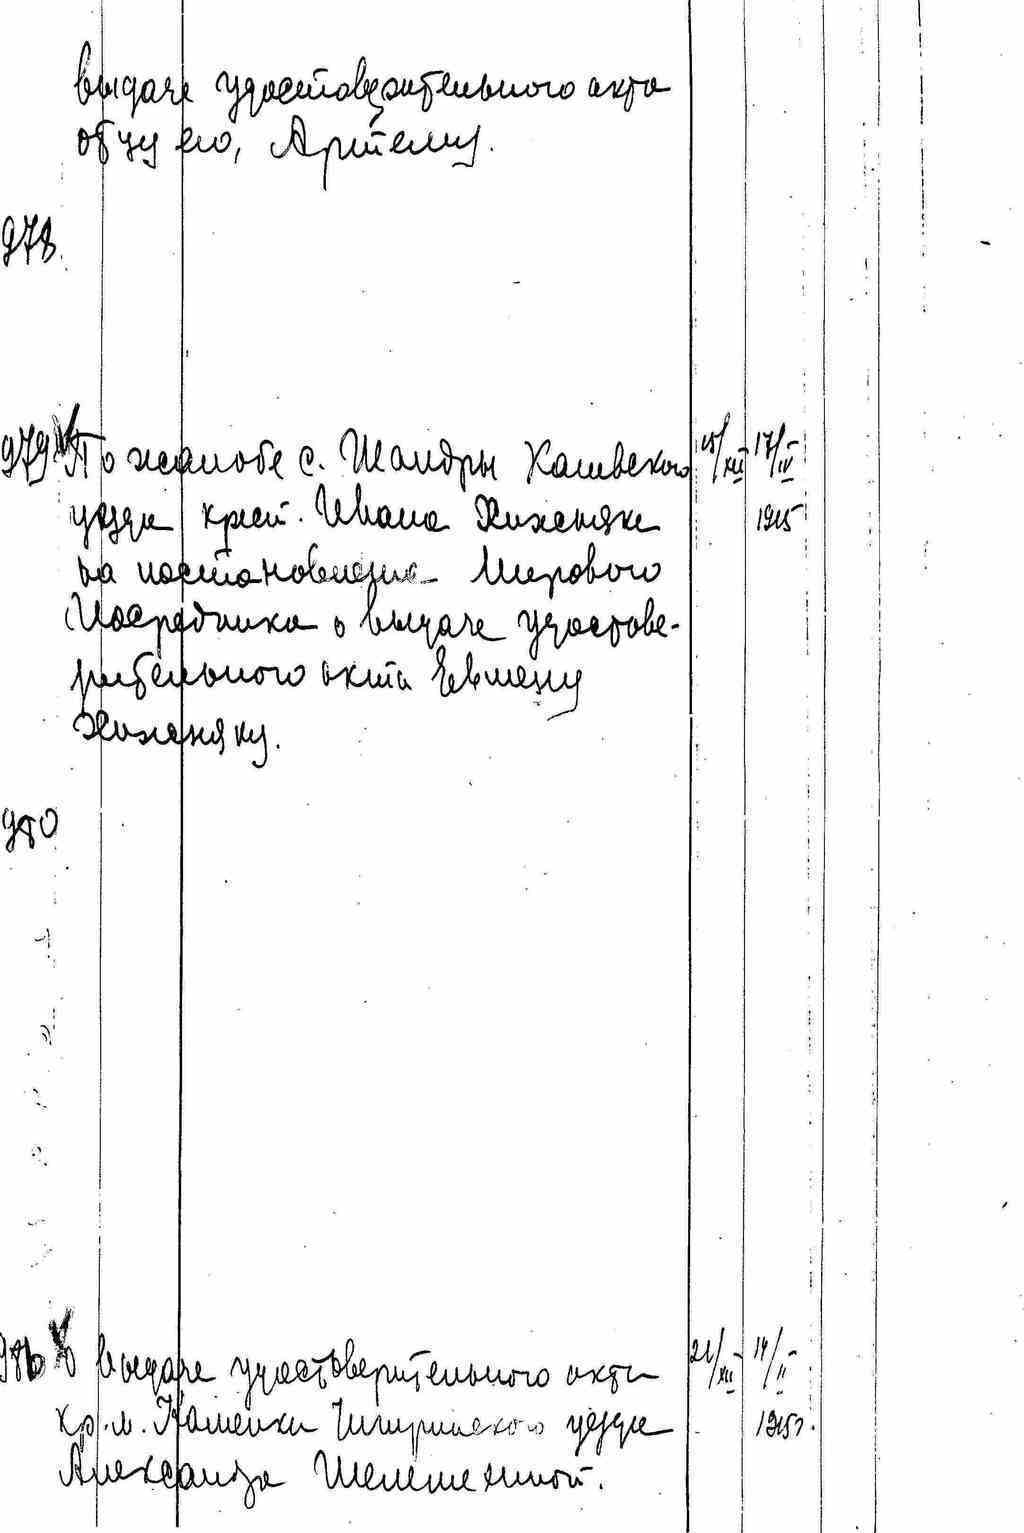 выдаче удостоверительного акта
отцу его, Артему.
978.
979 По жалобе с. Шандры Каневского 15/XII 17/IV
уезда крест. Ивана Хижняка 1915
на постановление Мирового
Посредника о выдаче удостове-
рительного акта Евмену
Хижняку.
980
986 О выдаче удостоверительного акта 21/XII 14/II
кр. м. Каменки Чигиринского уезда 1915 г.
Александра